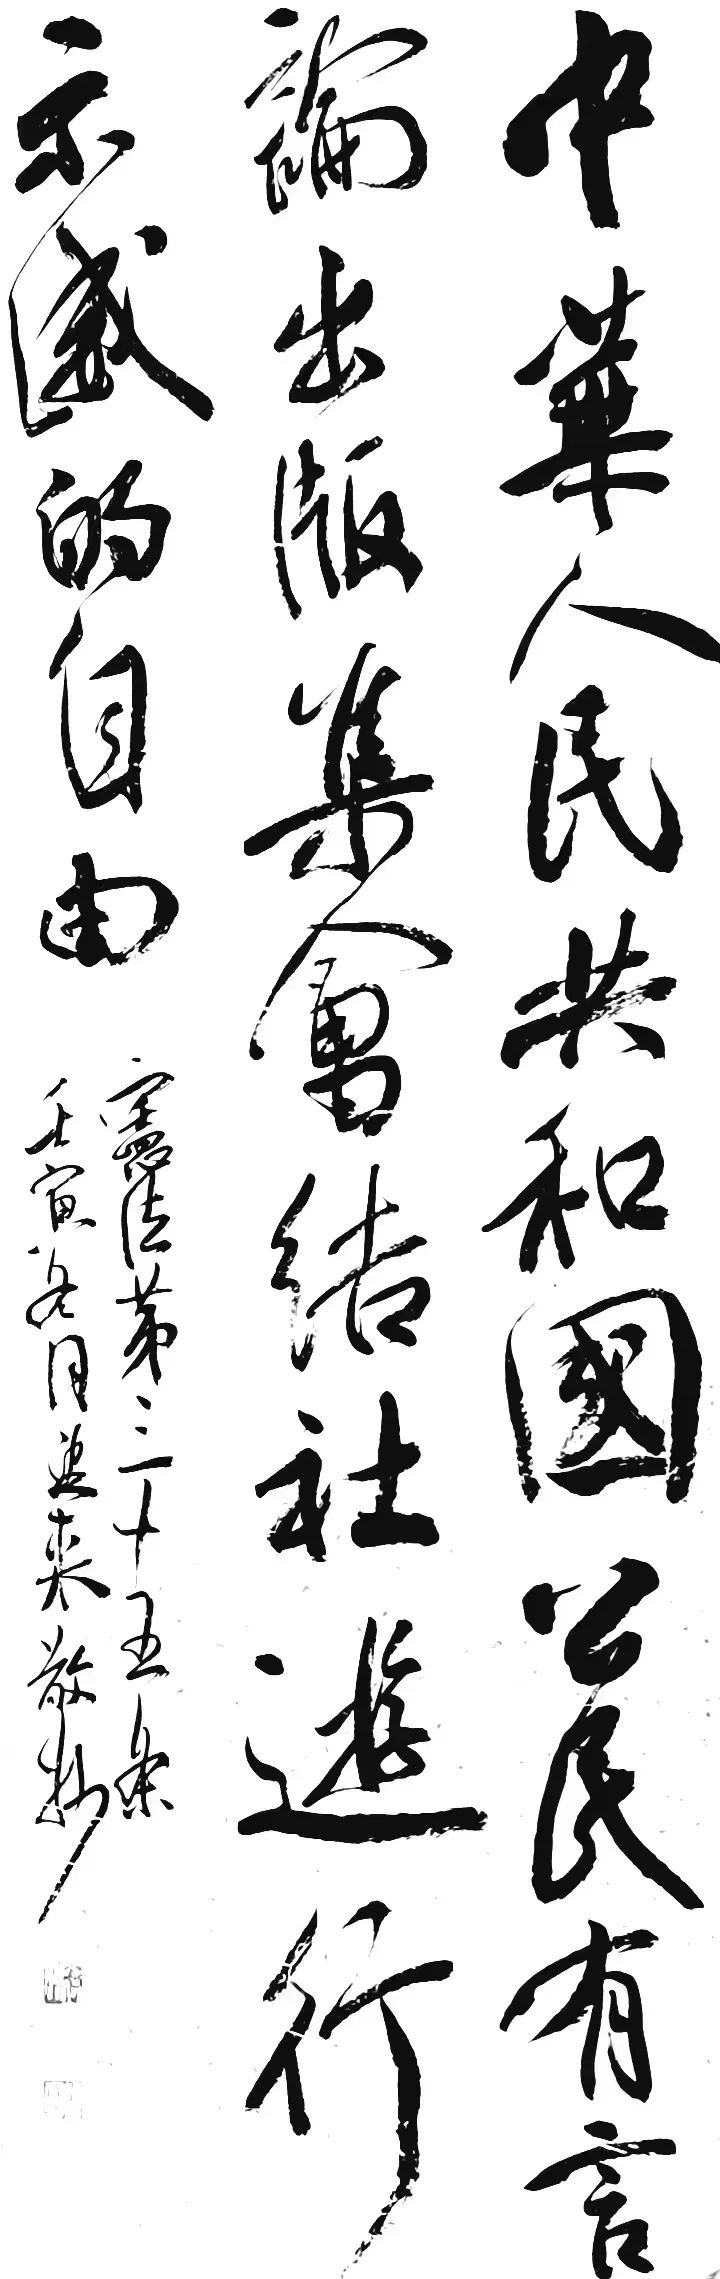 中華人民共和國公民有言
論出版集會結社遊行
示威的自由
憲法第三十五条
壬寅冬月 敬抄